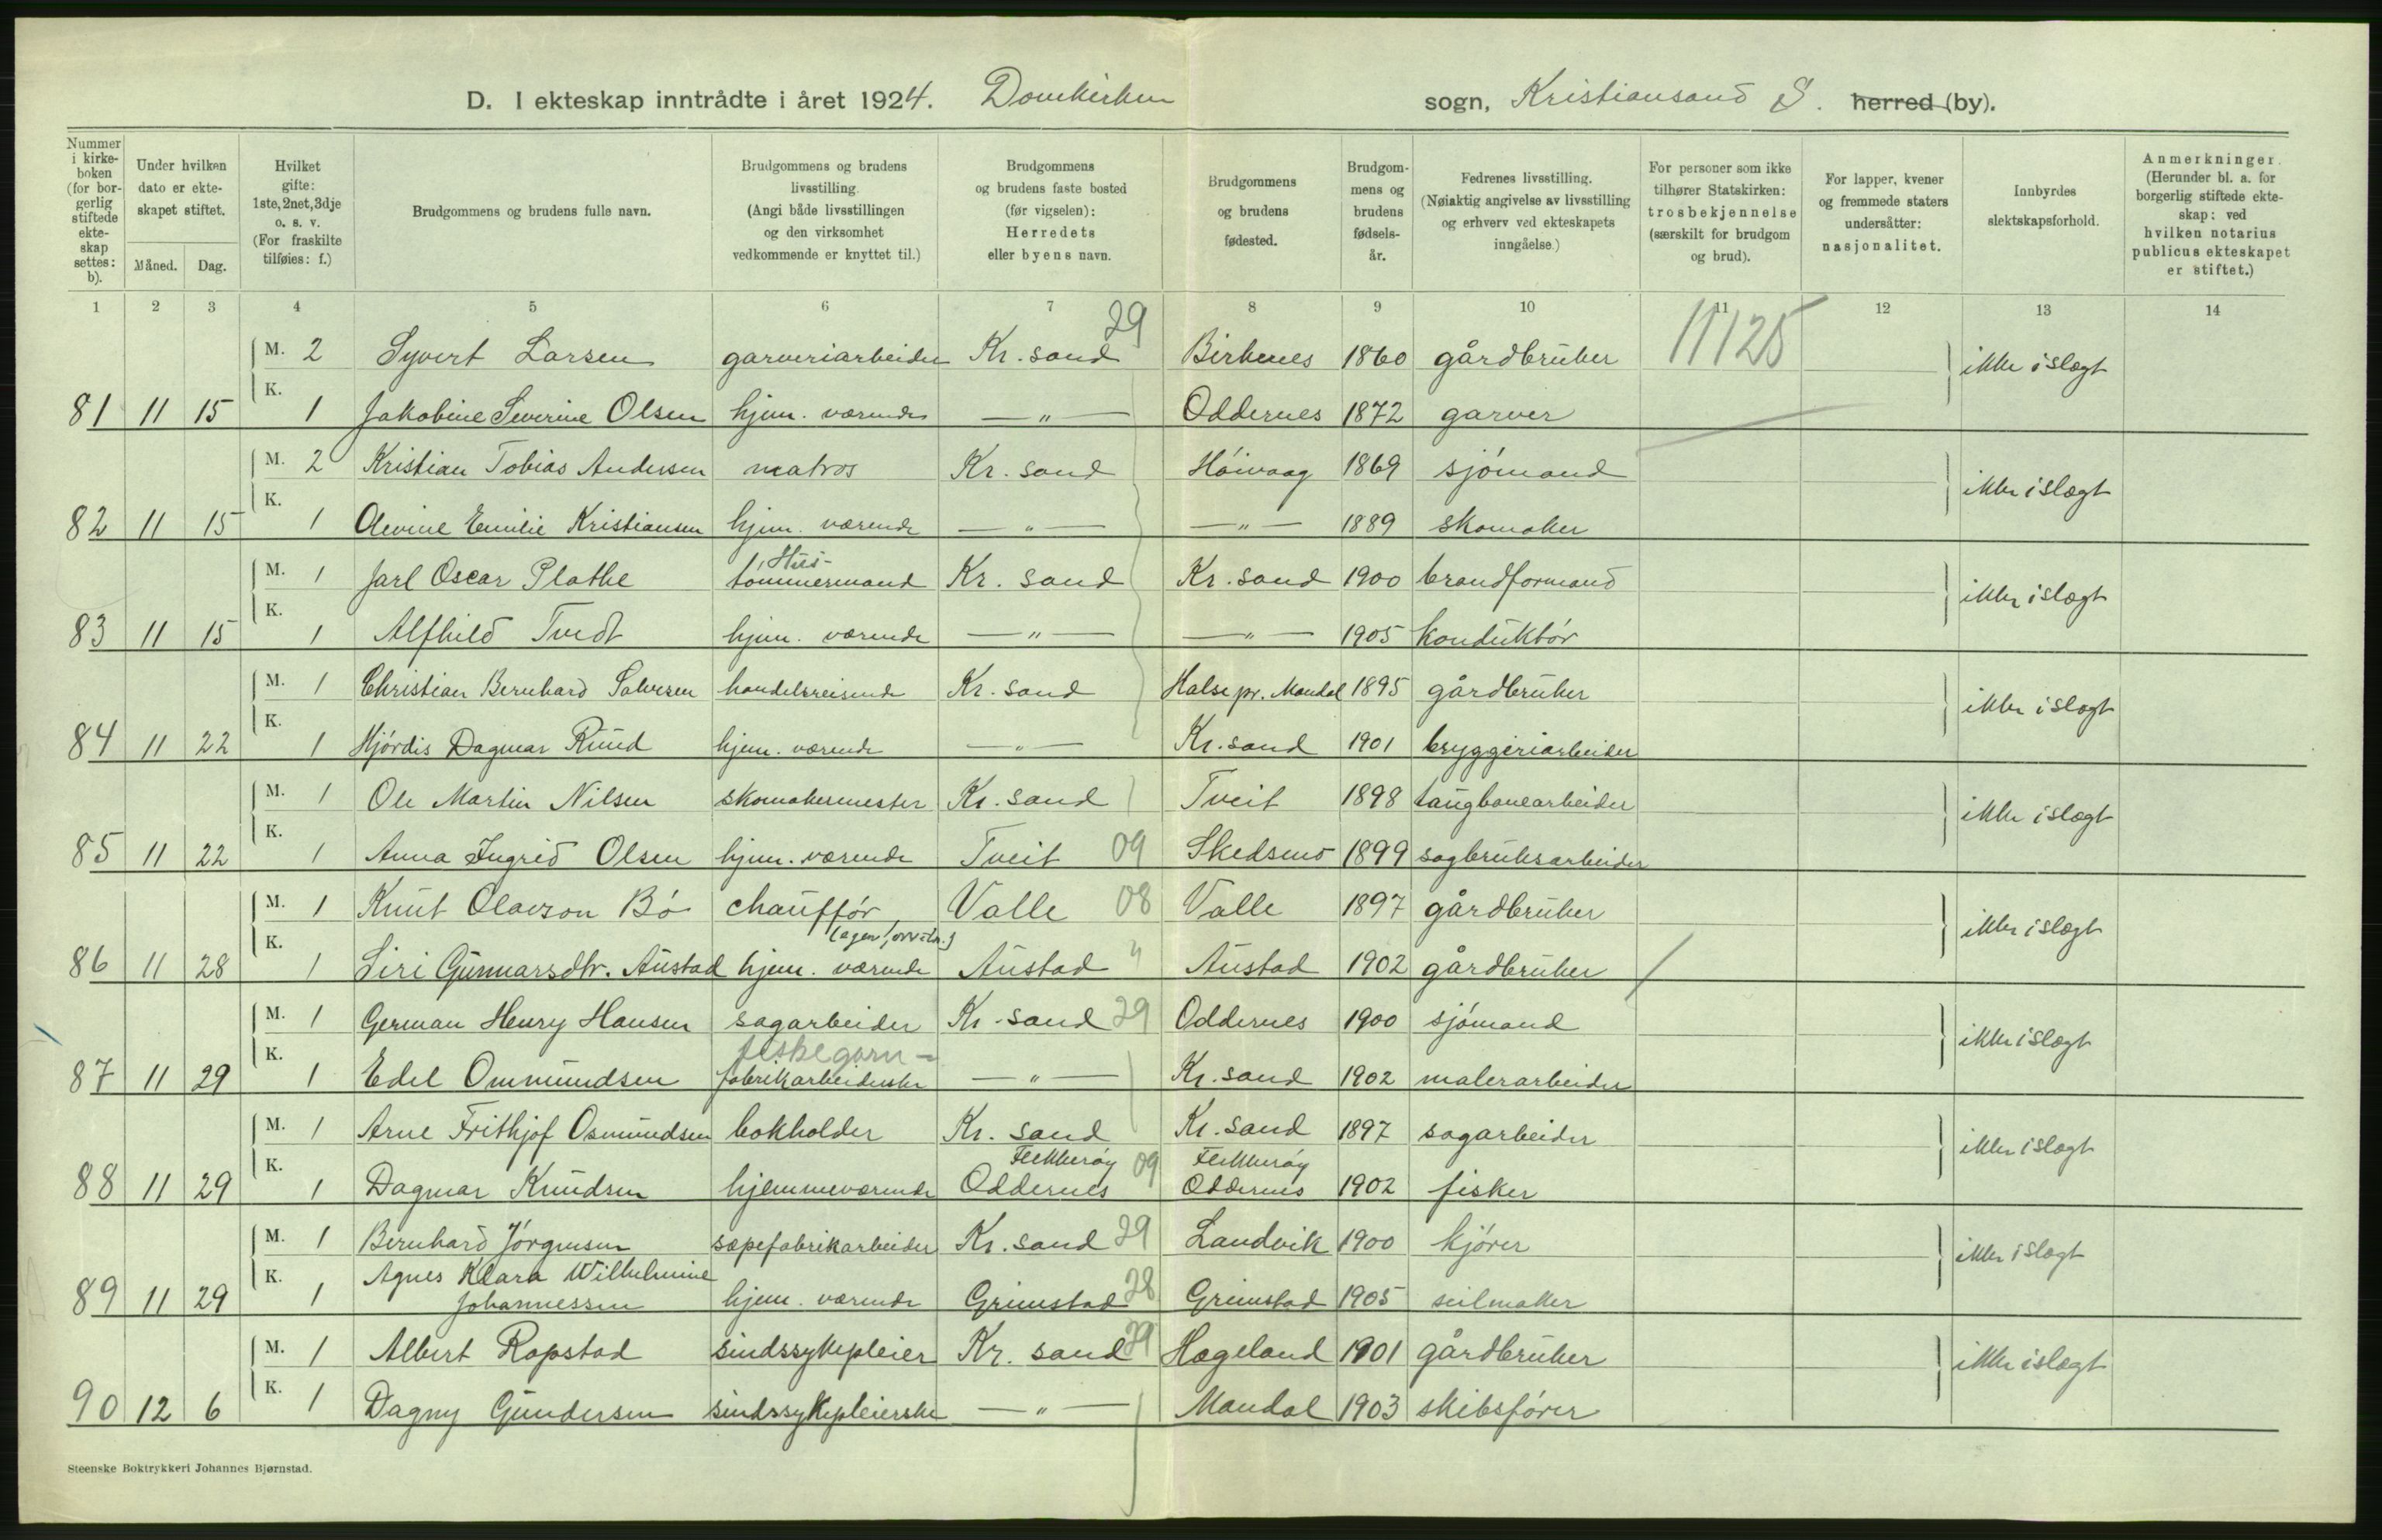 D. I ekteskap inntrådte i året 1924. Domkirken sogn, Kristiansand S. herred (by).
Nummer i kirkeboken (for borgerlig stiftede ekteskap settes: b).
Under hvilken dato er ekteskapet stiftet.
Måned. Dag.
Hvilket gifte: 1ste, 2net, 3dje o. s. v. (For fraskilte tilføies: f.)
Brudgommens og brudens fulle navn.
Brudgommens og brudens livsstilling (Angi både livsstillingen og den virksomhet vedkommende er knyttet til.)
Brudgommens og brudens faste bosted (før vigselen): Herredets eller byens navn.
Brudgommens og brudens fødested.
Brudgommens og brudens fødselsår.
Fedrenes livsstilling. (Nøiaktig angivelse av livsstilling og erhverv ved ekteskapets inngåelse.)
For personer som ikke tilhører Statskirken: trosbekjennelse (særskilt for brudgom og brud).
For lapper, kvener og fremmede staters undersåtter: nasjonalitet.
Innbyrdes slektskapsforhold.
Anmerkninger. (Herunder bl. a. for borgerlig stiftede ekteskap: ved hvilken notarius publicus ekteskapet er stiftet.)
1 2 3 4 5 6 7 8 9 10 11 12 13 14
M. 2 Syvert Larsen garveriarbeider Kr. sand 29 Birkenes 1860 gårdbruker 11125 ikke i slægt
81 11 15 K. 1 Jakobine Severine Olsen hjem. værende — " — Oddernes 1872 garver
M. 2 Kristian Tobias Andersen matros Kr. sand Høivaag 1869 sjømand ikke i slægt
82 11 15 K. 1 Olevine Emilie Kristiansen hjem. værende — " — — " — 1889 skomaker
M. 1 Jarl Oscar Plathe Hus-tømmermand Kr. sand Kr. sand 1900 brandformand ikke i slægt
83 11 15 K. 1 Alfhild Tvedt hjem. værende — " — — " — 1905 konduktør
M. 1 Christian Bernhard Salvesen handelsreisende Kr. sand Halse pr. Mandal 1895 gårdbruker ikke i slægt
84 11 22 K. 1 Hjørdis Dagmar Ruud hjem. værende — " — Kr. sand 1901 bryggeriarbeider
M. 1 Ole Martin Nilsen skomakermester Kr. sand Tveit 1898 taugbanearbeider ikke i slægt
85 11 22 K. 1 Anna Ingrid Olsen hjem. værende Tveit 09 Skedsmo 1899 sagbruksarbeider
M. 1 Knut Olavson Bø chauffør Valle 08 Valle 1897 gårdbruker ikke i slægt
86 11 28 K. 1 Siri Gunnarsdtr. Austad hjem. værende Austad " Austad 1902 gårdbruker
M. 1 German Henry Hansen sagarbeider Kr. sand 29 Oddernes 1900 sjømand ikke i slægt
87 11 29 K. 1 Edel Ommundsen fiskegarn-fabrikarbeiderske — " — Kr. sand 1902 malerarbeider
M. 1 Arne Frithjof Osmundsen bokholder Kr. sand Kr. sand 1897 sagarbeider ikke i slægt
88 11 29 K. 1 Dagmar Knudsen hjemmeværende Flekkerøy Oddernes 09 Flekkerøy Oddernes 1902 fisker
M. 1 Bernhard Jørgensen sæpefabrikarbeider Kr. sand 29 Landvik 1900 kjører ikke i slægt
89 11 29 K. 1 Agnes Klara Wilhelmine Johannessen hjem. værende Grimstad 28 Grimstad 1905 seilmaker
M. 1 Albert Ropstad sindssykepleier Kr. sand 29 Hægeland 1901 gårdbruker ikke i slægt
90 12 6 K. 1 Dagny Gundersen sindssykepleierske — " — Mandal 1903 skibsfører
Steenske Boktrykkeri Johannes Bjørnstad.